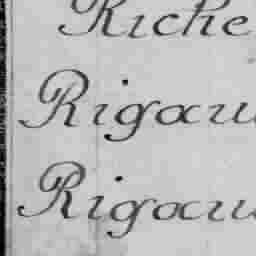 Riche
Rigau
Rigau